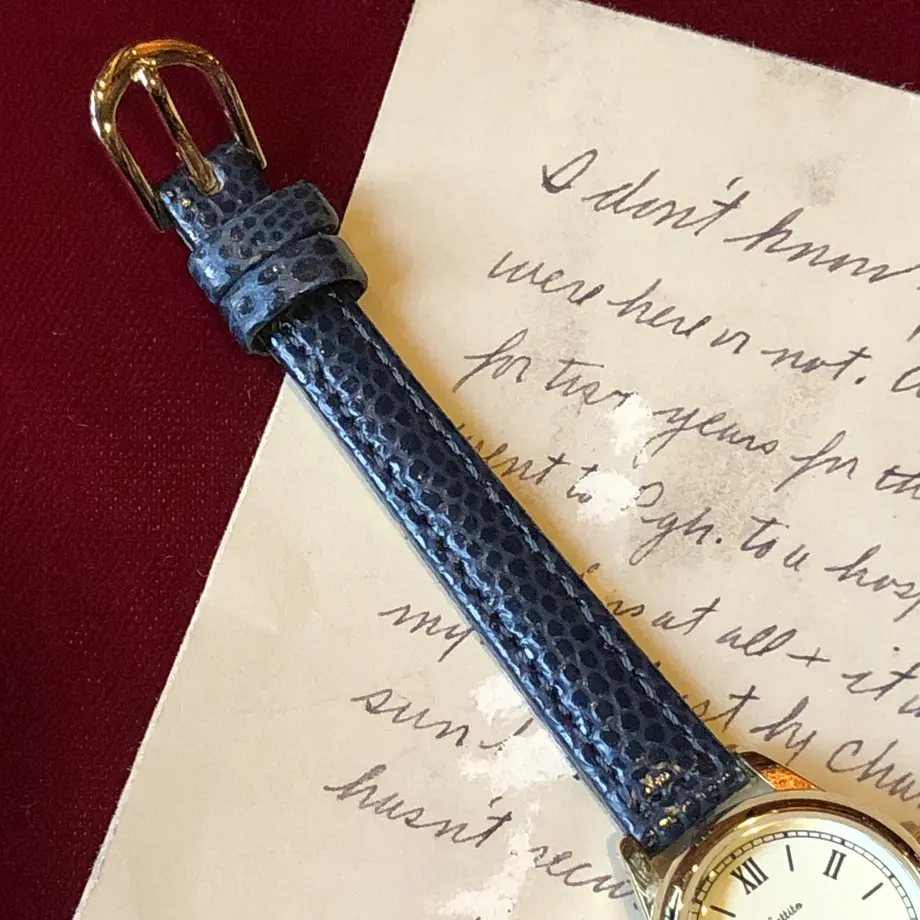 I don't know
were here or not.
for two years for
went to Pgh. to a hosp
my at all + it
sun by
hasn't
XII II